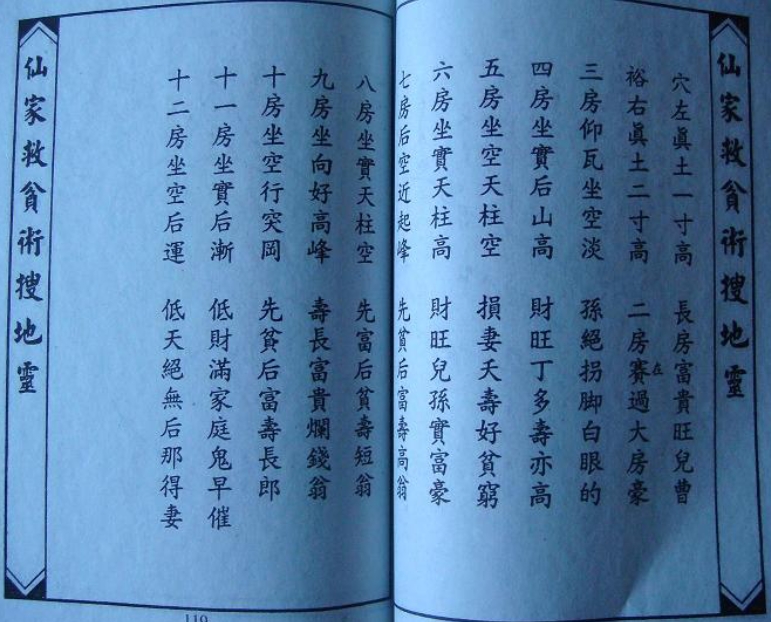 仙家救貧術搜地靈
穴左眞土一寸高 長房富貴旺兒曹
裕右眞土二寸高 二房賽過大房豪
在
三房仰瓦坐空淡 孫絕拐脚白眼的
四房坐實后山高 財旺丁多壽亦高
五房坐空天柱空 損妻夭壽好貧窮
六房坐實天柱高 財旺兒孫實富豪
七房后空近起峰 先貧后富壽高翁
八房坐實天柱空 先富后貧壽短翁
九房坐向好高峰 壽長富貴爛錢翁
十房坐空行突岡 先貧后富壽長郎
十一房坐實后漸 低財滿家庭鬼早催
十二房坐空后運 低天絕無后那得妻
仙家救貧術搜地靈
119